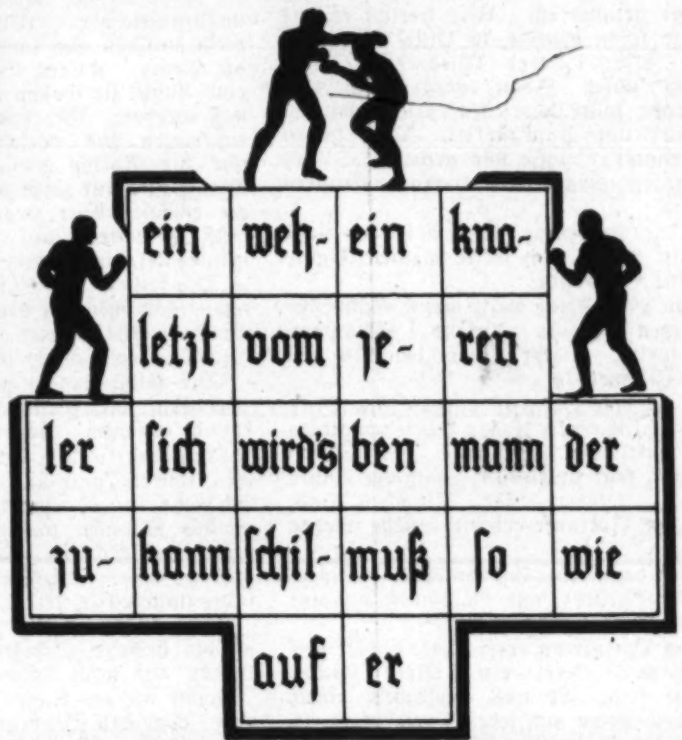 ein weh- ein kna-
letzt vom je- ren
ler sich wird's ben mann der
zu- kann schil- muß so wie
auf er